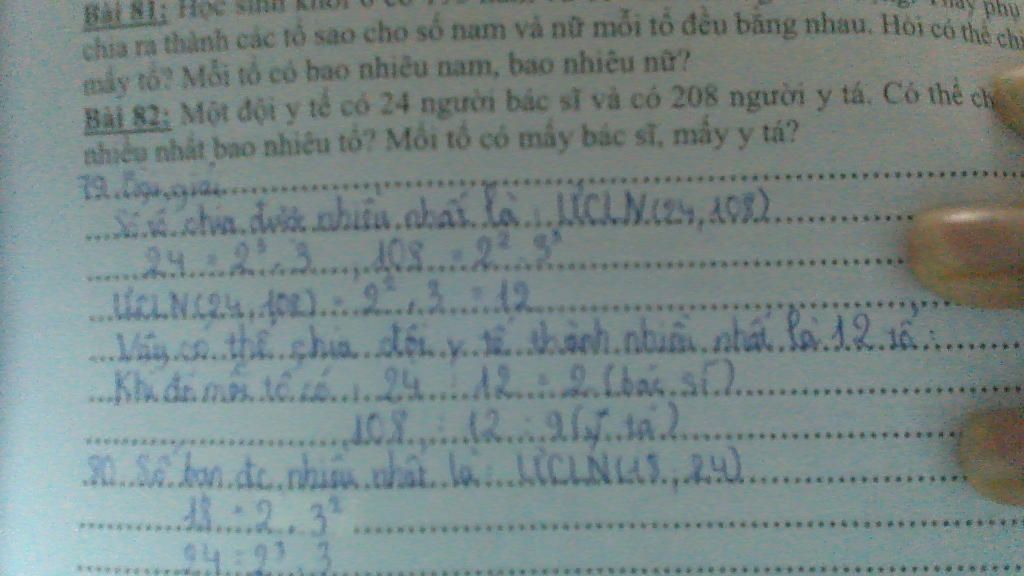 Bài 81: Học sinh khối 6 có
chia ra thành các tổ sao cho số nam và nữ mỗi tổ đều bằng nhau. Hỏi có thể chi
mấy tổ? Mỗi tổ có bao nhiêu nam, bao nhiêu nữ?
Bài 82: Một đội y tế có 24 người bác sĩ và có 208 người y tá. Có thể ch
nhiều nhất bao nhiêu tổ? Mỗi tổ có mấy bác sĩ, mấy y tá?
79. Bài giải
Số tổ chia được nhiều nhất là : ƯCLN(24, 108)
24 = 2³ . 3 , 108 = 2² . 3³
ƯCLN(24, 108) = 2² . 3 = 12
Vậy có thể chia đội y tế thành nhiều nhất là 12 tổ.
Khi đó mỗi tổ có : 24 : 12 = 2 (bác sĩ)
108 : 12 = 9 (y tá)
80. Số bạn đc nhiều nhất là : ƯCLN(18, 24)
18 = 2 . 3²
24 = 2³ . 3